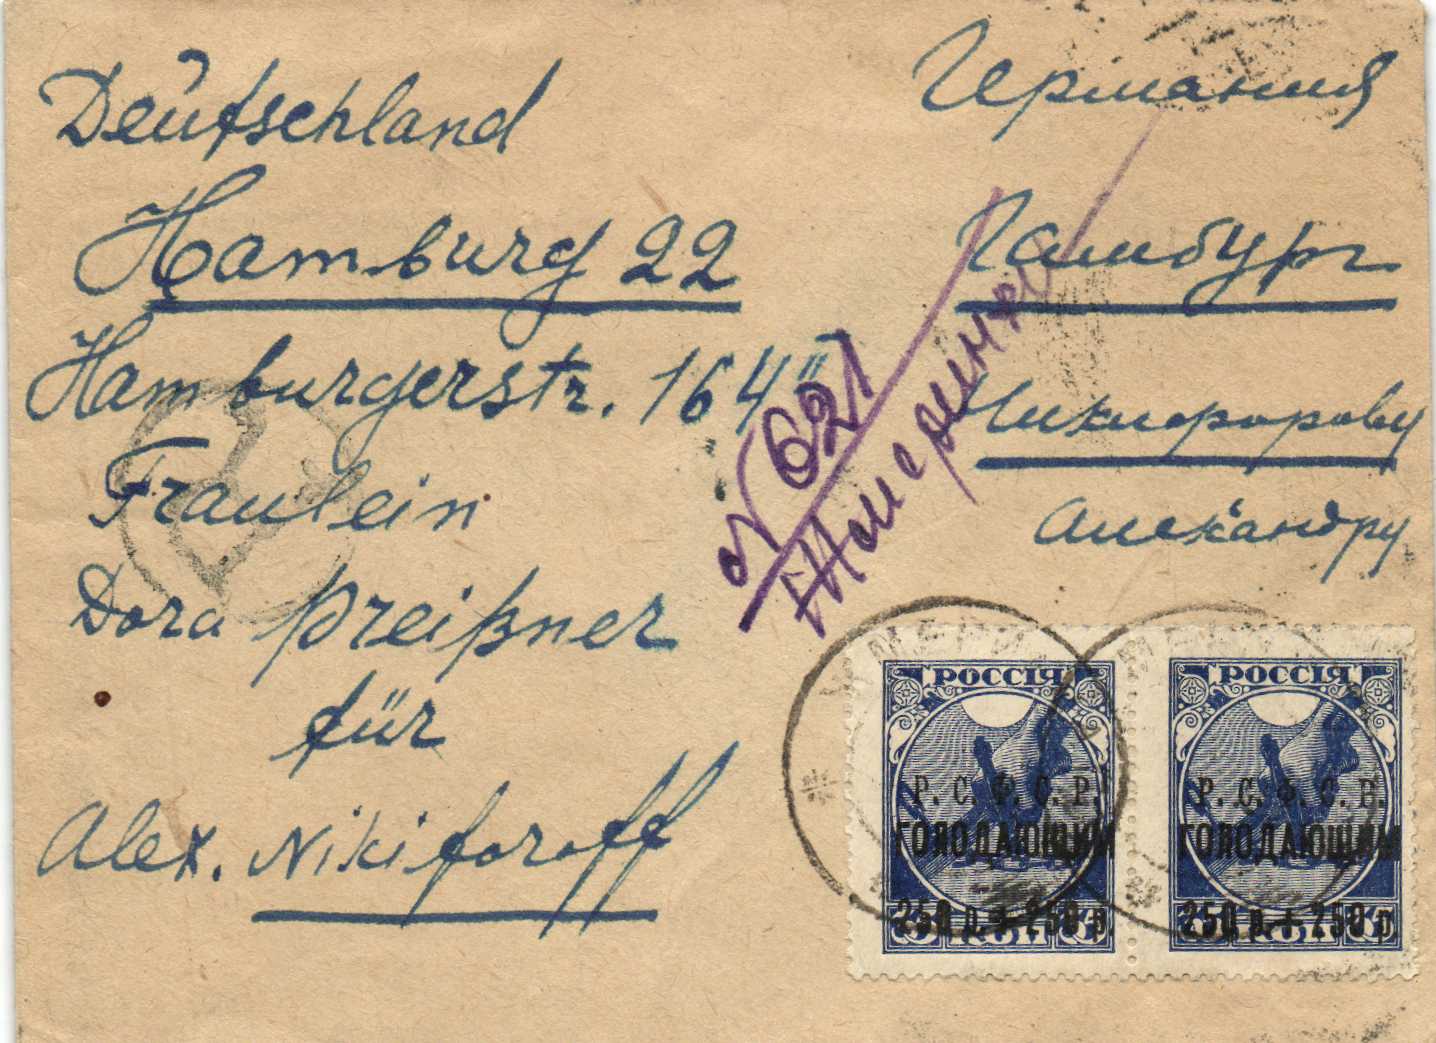 Deutschland
Hamburg 22
Hamburgerstr. 164 II
Fräulein
Dora Preißner
für
Alex. Nikiforoff
Германия
Гамбург
Никифорову
Александру
№ 621
РОССІЯ
Р. С. Ф. С. Р.
ГОЛОДАЮЩИМ
250 р. + 250 р.
РОССІЯ
Р. С. Ф. С. Р.
ГОЛОДАЮЩИМ
250 р. + 250 р.